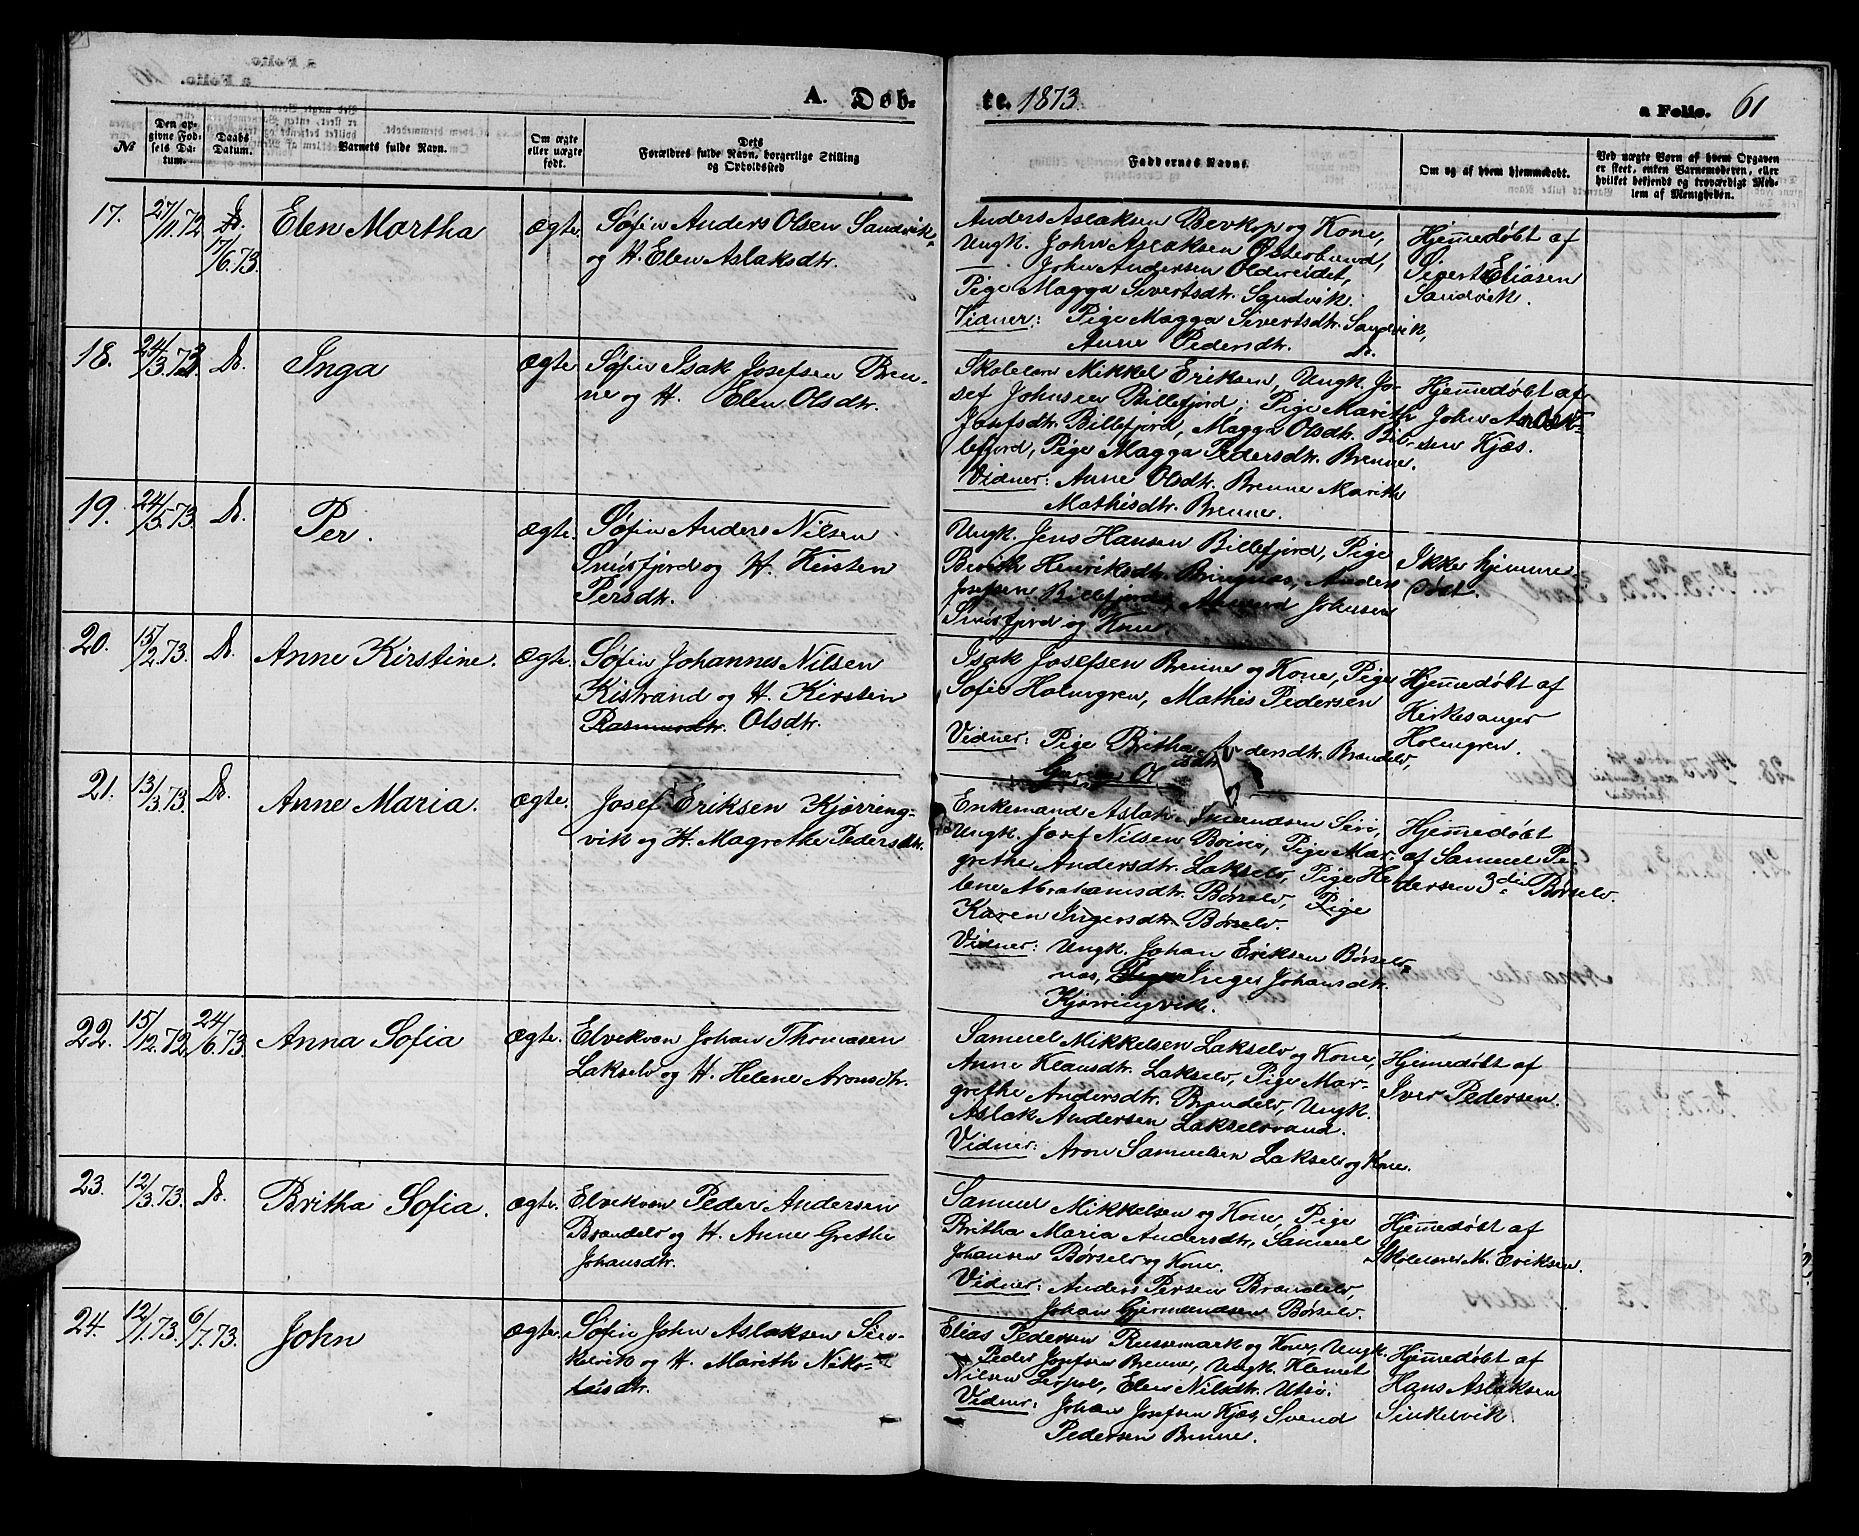 A. Døb-
te. 1873
a Folio. 61
№
Den op-
givne Fød-
sels Da-
tum.
Daabs
Datum.
Barnets fulde Navn.
Om ægte
eller uægte
født.
Dets
Forældres fulde Navn, borgerlige Stilling
og Opholdssted
Faddernes Navne.
Om og af hvem hjemmedøbt.
Ved uægte Børn af hvem Opgaven
er skeet, enten Barnemoderen, eller
hvilket bekjendt og troværdigt Med-
lem af Menigheden.
17.
27/11.72
17/6.73.
Elen Martha
ægte.
Søfin Anders Olsen Sandvik
og H. Elen Aslaksdtr.
Anders Aslaksen Bevkop og Kone,
Ungk. John Aslaksen Østerbund,
John Andersen Oldereidet,
Pige Magga Sivertsdtr. Sandvik.
Vidner: Pige Magga Sivertsdtr. Sandvik,
Anne Pedersdtr. Do.
Hjemmedøbt af
Sivert Eliasen
Sandvik.
18.
24/3.73.
Do.
Inga
ægte
Søfin Isak Josefsen Bren-
ne og H. Elen Olsdtr.
Skolelær. Mikkel Eriksen, Ungk. Jo-
sef Johnsen Billefjord, Pige Marith
Josefsdtr. Billefjord, Magga Olsdtr. Bil-
lefjord, Pige Magga Pedersdtr. Brenne.
Vidner: Anne Olsdtr. Brenne Marith
Mathisdtr. Brenne.
Hjemmedøbt af
John
sen Kjæs.
19.
24/5.73.
Do.
Per.
ægte.
Søfin Anders Nilsen
Smørfjord og H. Kirsten
Persdtr.
Ungk. Jens Hansen Billefjord, Pige
Berith Henriksdtr. Bringnæs, Anders
Josefsen Billefjord, Amund Johnsen
Smørfjord og Kone.
Ikke hjemme-
døbt.
20.
15/2.73.
Do.
Anne Kirstine.
ægte.
Søfin Johannes Nilsen
Kistrand og H. Kirsten
Rasmusdtr. Olsdtr.
Isak Josefsen Brenne og Kone, Pige
Sofie Holmgren, Mathis Pedersen
Vidner: Pige Britha Andersdtr. Brandelv,
Hjemmedøbt af
Kirkesanger
Holmgren.
21.
13/3.73.
Do.
Anne Maria.
ægte.
Josef Eriksen Kjørring-
vik og H. Magrethe Pedersdtr.
Enkemand Aslak Amundsen
Ungk. Josef Nilsen Pige Mar-
grethe Andersdtr. Lakselv, Pige He-
lene Abrahamsdtr. Børselv, Pige
Karen Ingersdtr. Børselv.
Vidner: Ungk. Johan Eriksen Børselv-
næs, Pige Inger Johansdtr.
Kjørringvik.
Hjemmedøbt
af Samuel Pe-
dersen 3die Børselv.
22.
15/12.72
24/6.73.
Anna Sofia
ægte.
Elvekvæn Johan Thomasen
Lakselv og H. Helene Aronsdtr.
Samuel Mikkelsen Lakselv og Kone,
Anne Klausdtr. Lakselv, Pige Mar-
grethe Andersdtr. Brandelv, Ungk.
Aslak Andersen Lakselvstrand.
Vidner: Aron Samuelsen Lakselv og Kone.
Hjemmedøbt af
Iver Pedersen.
23.
12/3.73.
Do.
Britha Sofia.
ægte.
Elvekvæn Peder Andersen
Brandelv og H. Anne Grethe
Johansdtr.
Samuel Mikkelsen og Kone, Pige
Britha Maria Andersdtr., Samuel
Johansen Børselv og Kone.
Vidner: Anders Persen Brandelv,
Johan Gjermundsen Børselv.
Hjemmedøbt af
Skolelærer M. Eriksen.
24.
12/1.73.
6/7.73.
John
ægte.
Søfin John Aslaksen Sin-
kelvik og H. Marith Niko-
laisdtr.
Elias Pedersen Russemark og Kone, Ungk.
Peder Josefsen Brenne, Ungk. Klemet
Nilsen Leirpol, Elen Nilsdtr.
Vidner: Johan Josefsen Kjæs, Svend
Pedersen Brenne.
Hjemmedøbt af
Hans Aslaksen
Sinkelvik